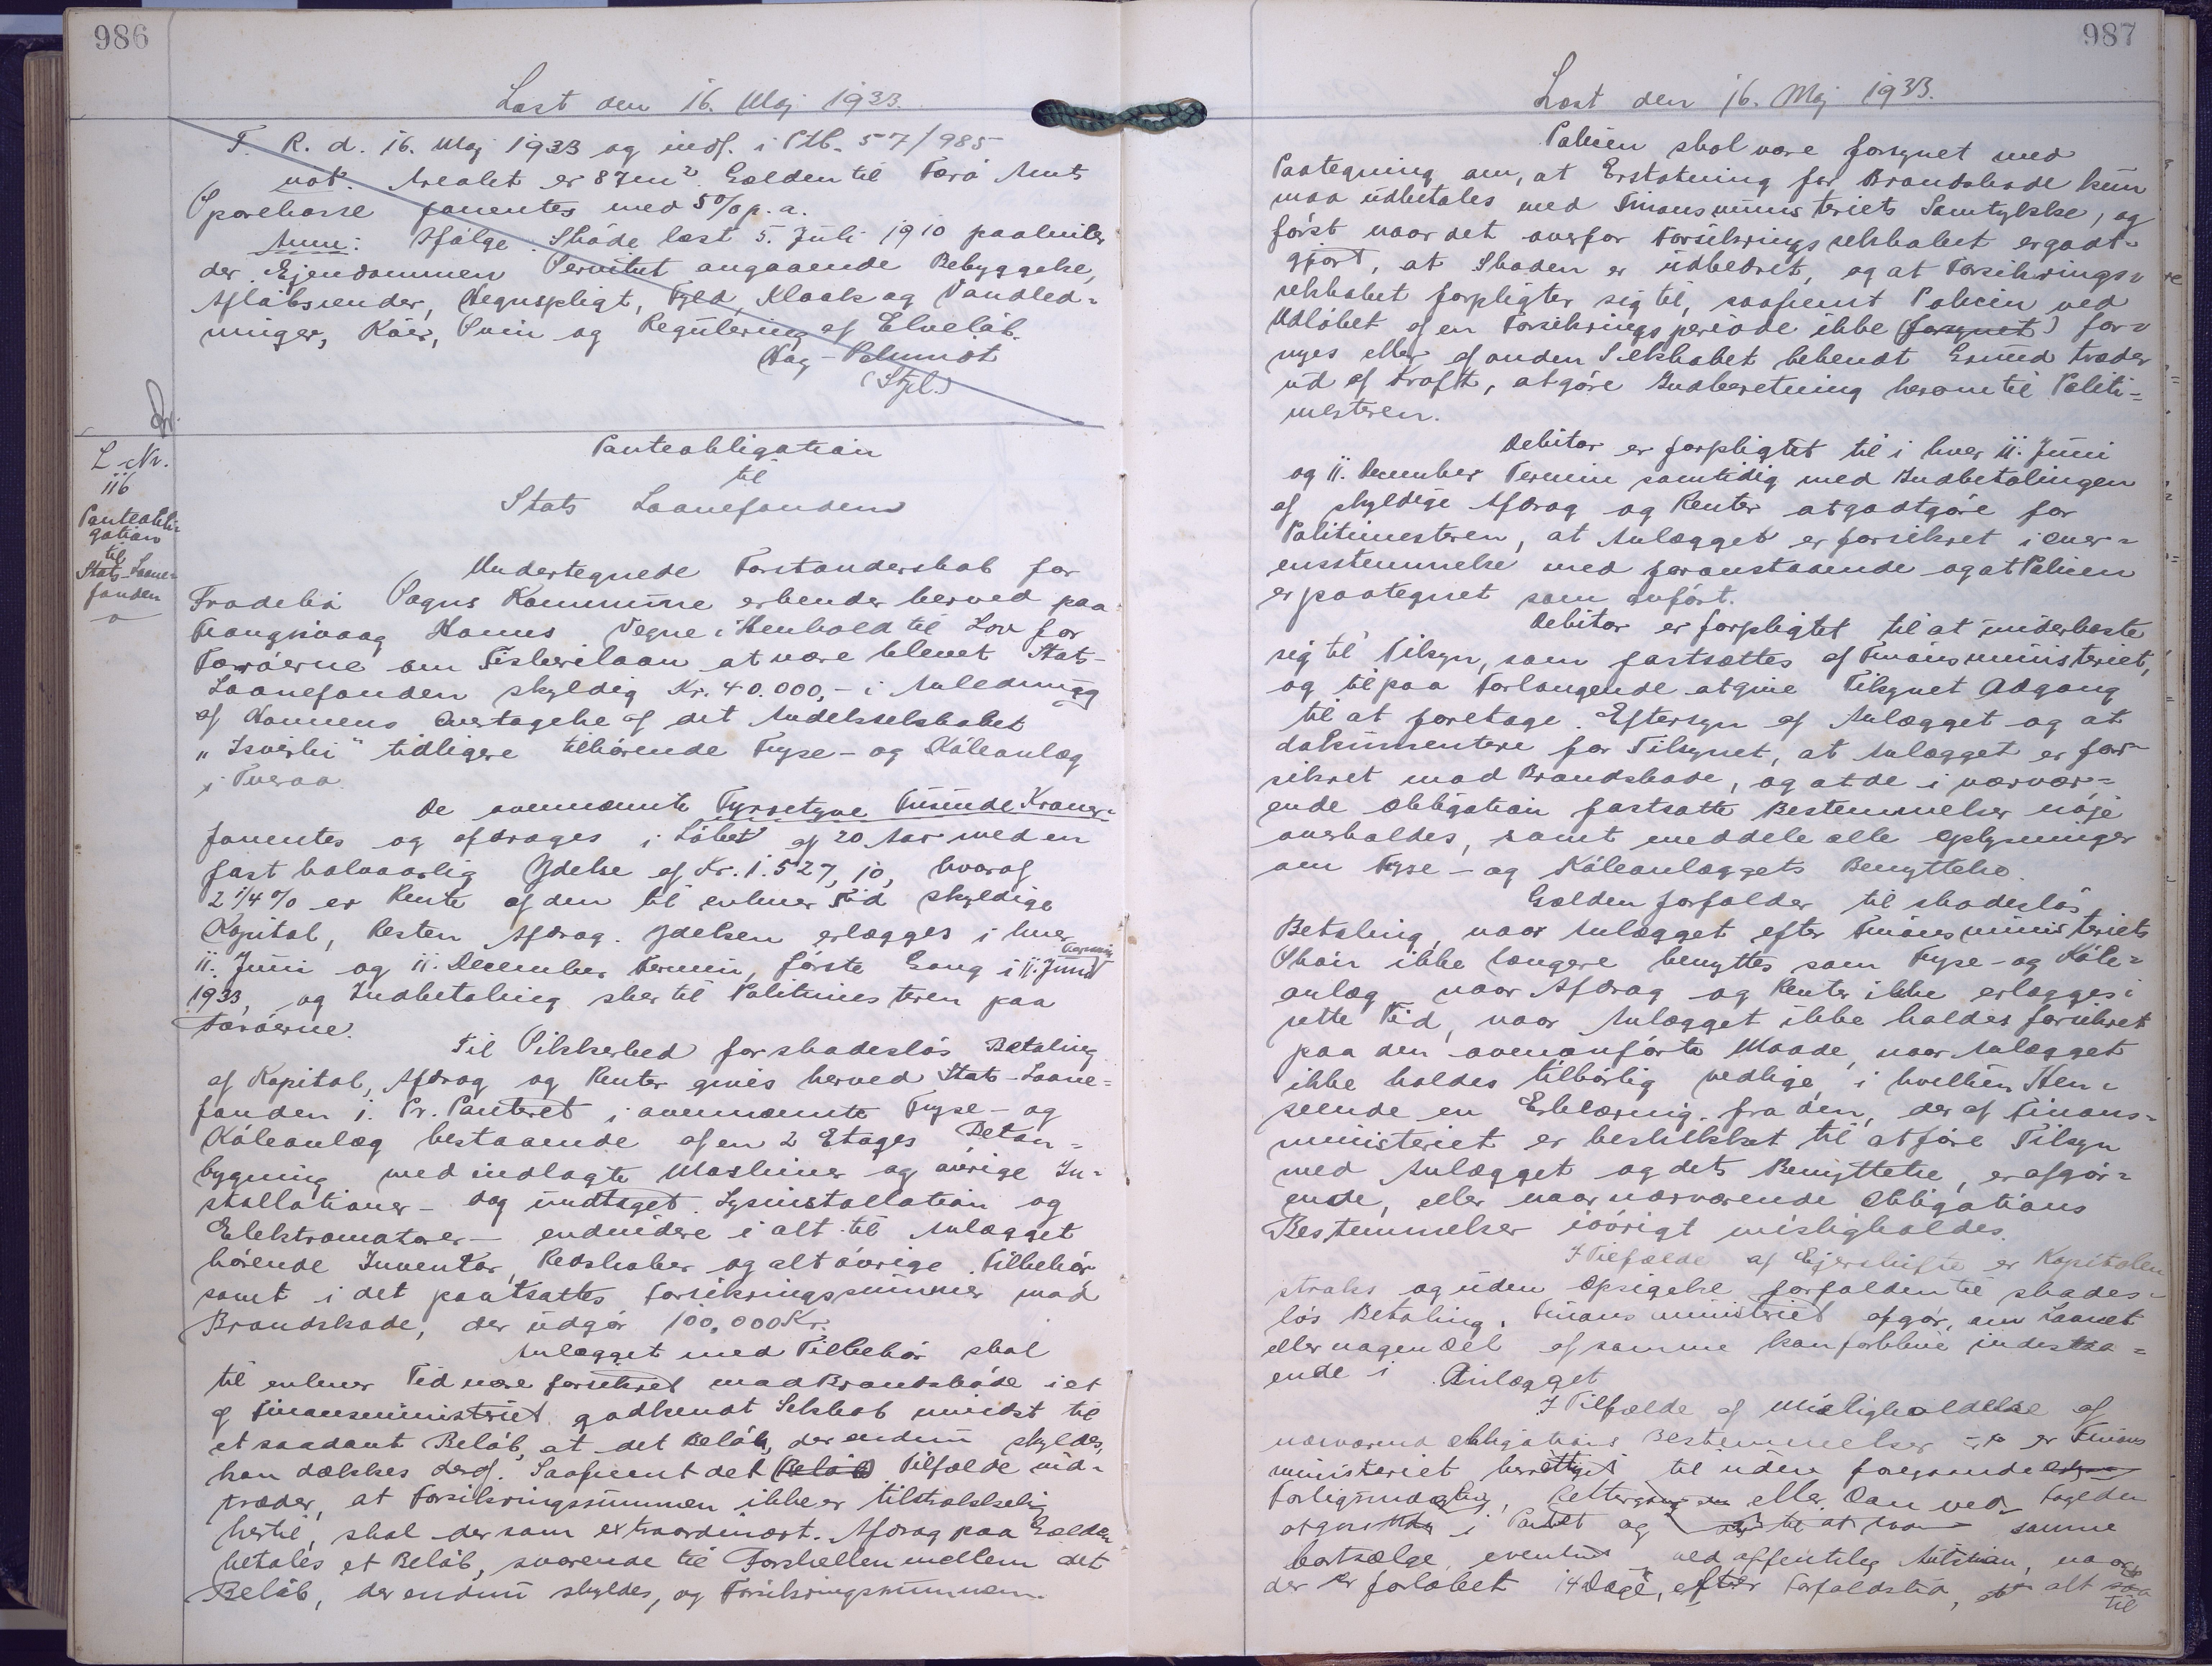 986
Læst den 16. Maj 1933.
T. R. d. 16. Maj 1933 og indf. i Ptb. 57/985
not. Arealet er 87 m². Gælden til Færø Amts
Sparekasse forrentes med 5% p. a.
Anm: Ifølge Skøde læst 5. Juli 1910 paahviler
der Ejendommen Servitut angaaende Bebyggelse,
Afløbsrender, Hegnspligt, Fyld, Kloak og Vandled-
ninger, Køer, Svin og Regulering af Elveløb.
Hag-Schmidt
(Stpl.)
L Nr.
116
Panteobli-
gation
til
Stats-Laane-
fonden
Panteobligation
til
Stats Laanefonden
Undertegnede Forstanderskab for
Frodebø Sogns Kommune erkender herved paa
Trangisvaag Havns Vegne i Henhold til Lov for
Færøerne om Fiskerilaan at være blevet Stats-
Laanefonden skyldig Kr. 40.000,- i Anledning
af Havnens Overtagelse af det Andelsselskabet
"Isvirki" tidligere tilhørende Fryse- og Køleanlæg
i Tveraa.
De ovennævnte Fyrretyve Tusinde Kroner
forrentes og afdrages i Løbet af 20 Aar med en
fast halvaarlig Ydelse af Kr. 1.527,10, hvoraf
2 1/4% er Rente af den til enhver Tid skyldige
Kapital, Resten Afdrag. Ydelsen erlægges i hver
11. Juni og 11. December Termin, første Gang i 11. Juni Termin
1933, og Indbetaling sker til Politimesteren paa
Færøerne.
Til Sikkerhed for skadesløs Betaling
af Kapital, Afdrag og Renter gives herved Stats-Laane-
fonden 1. Pr. Panteret i ovennævnte Fryse- og
Køleanlæg bestaaende af en 2 Etages Beton-
bygning med indlagte Maskiner og øvrige In-
stallationer - dog undtaget Lysinstallation og
Elektromotorer - endvidere i alt til Anlægget
hørende Inventar, Redskaber og alt øvrige Tilbehør
samt i det pantsattes Forsikringssummer mod
Brandskade, der udgør 100.000 Kr.
Anlægget med Tilbehør skal
til enhver Tid være forsikret mod Brandskade i et
af Finansministeriet godkendt Selskab mindst til
et saadant Beløb, at det Beløb, der endnu skyldes,
kan dækkes deraf. Saafremt det (Beløb) Tilfælde ind-
træder, at Forsikringssummen ikke er tilstrækkelig
hertil, skal der som extraordinært Afdrag paa Gælden
betales et Beløb, svarende til Forskellen mellem det
Beløb, der endnu skyldes, og Forsikringssummen.
987
Læst den 16. Maj 1933.
Policen skal være forsynet med
Paategning om, at Erstatning for Brandskade kun
maa udbetales med Finansministeriets Samtykke, og
først naar det overfor Forsikringsselskabet er godt-
gjort, at Skaden er udbedret, og at Forsikrings-
selskabet forpligter sig til, saafremt Policen ved
Udløbet af en Forsikringsperiode ikke (forsynet) for-
nyes eller af anden Selskabet bekendt Grund træder
ud af Kraft, at gøre Indberetning herom til Politi-
mesteren.
Debitor er forpligtet til i hver 11. Juni
og 11. December Termin samtidig med Indbetalingen
af skyldige Afdrag og Renter at godtgøre for
Politimesteren, at Anlægget er forsikret i over-
ensstemmelse med foranstaaende og at Policen
er paategnet som anført.
Debitor er forpligtet til at underkaste
sig til Tilsyn, som fastsættes af Finansministeriet,
og til paa Forlangende at give Tilsynet Adgang
til at foretage Eftersyn af Anlægget og at
dokumentere for Tilsynet, at Anlægget er for-
sikret mod Brandskade, og at de i nærvær-
ende Obligation fastsatte Bestemmelser nøje
overholdes, samt meddele alle Oplysninger
om Fryse- og Køleanlæggets Benyttelse.
Gælden forfalder til skadesløs
Betaling, naar Anlægget efter Finansministeriets
Skøn ikke længere benyttes som Fryse- og Køle-
anlæg, naar Afdrag og Renter ikke erlægges i
rette Tid, naar Anlægget ikke holdes forsikret
paa den ovenanførte Maade, naar Anlægget
ikke holdes tilbørlig vedlige, i hvilken Hen-
seende en Erklæring fra den, der af Finans-
ministeriet er beskikket til at føre Tilsyn
med Anlægget og dets Benyttelse, er afgør-
ende, eller naar nærværende Obligations
Bestemmelser iøvrigt misligholdes.
I Tilfælde af Ejerskifte er Kapitalen
straks og uden Opsigelse forfalden til skades-
løs Betaling. Finansministeriet afgør, om Laanet
eller nogen Del af samme kan forblive indestaa-
ende i Anlægget
I Tilfælde af Misligholdelse af
nærværende Obligations Bestemmelser er Finans
ministeriet berettiget til uden foregaaende
Forligsmægling, Rettergang eller Dom ved Fogden
at gøre Udlæg i Pantet og samme
bortsælge eventuelt ved offentlig Auktion, naar
der er forløbet 14 Dage, efter Forfaldstid, alt
til